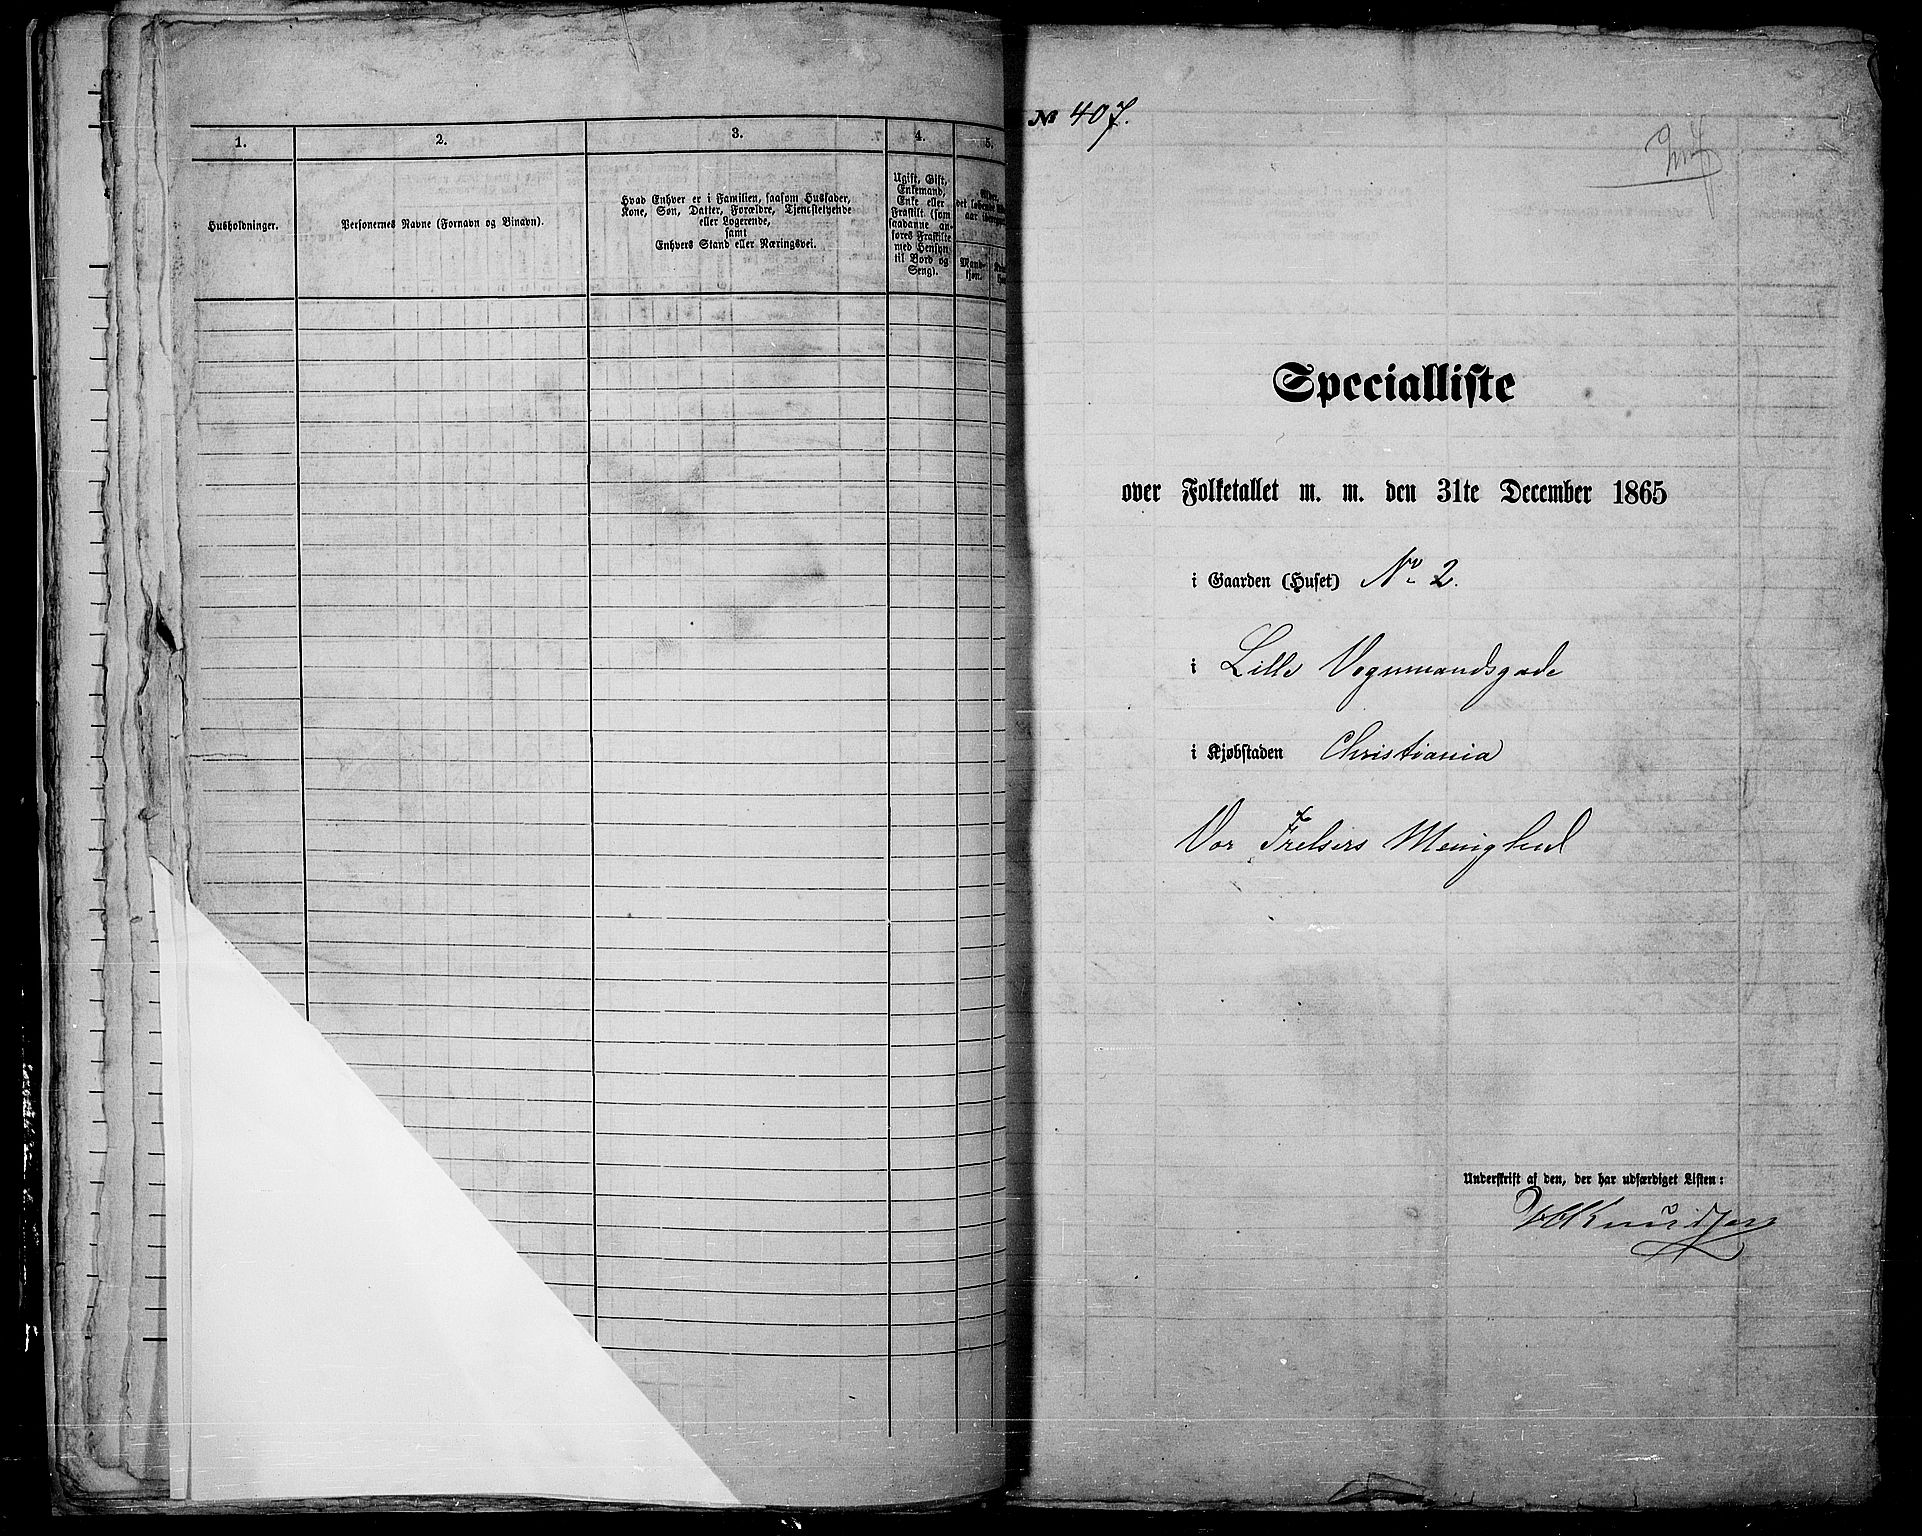 1.
2.
3.
4.
5.
Husholdninger.
Personernes Navne (Fornavn og Binavn).
Hvad Enhver er i Familien, saasom Husfader,
Kone, Søn, Datter, Forældre, Tjenstetyende
eller Logerende,
samt
Enhvers Stand eller Næringsvei.
Ugift, Gift,
Enkemand,
Enke eller
Fraskilt (som
saadanne an-
føres Fraskilte
med Hensyn
til Bord og
Seng).
Mand-
kjøn.
№ 407.
Specialliste
over Folketallet m. m. den 31te December 1865
i Gaarden (Huset) No 2.
i Lille Vognmandsgade
i Kjøbstaden Christiania
Vor Frelsers Menighed
Underskrift af den, der har udfærdiget Listen:
Knudsen